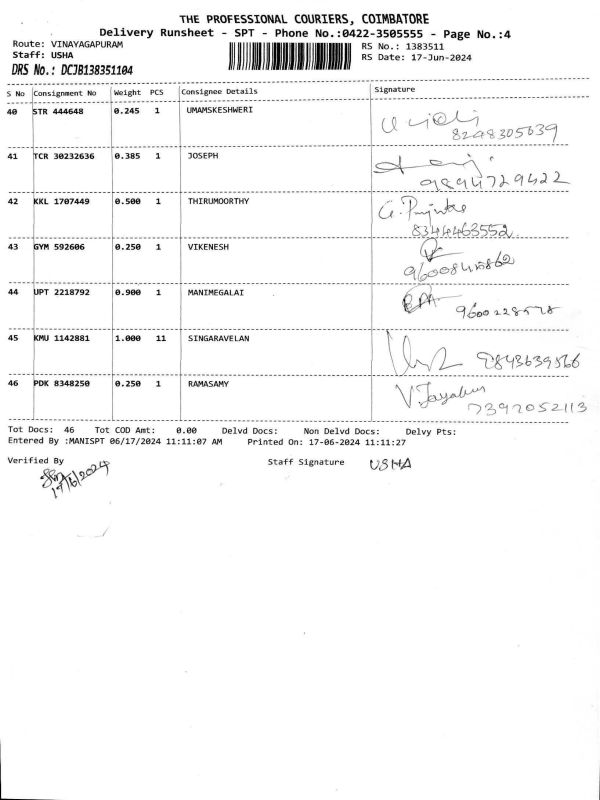 THE PROFESSIONAL COURIERS, COIMBATORE
Delivery Runsheet - SPT - Phone No.:0422-3505555 - Page No.:4
Route: VINAYAGAPURAM RS No.: 1383511
Staff: USHA RS Date: 17-Jun-2024
DRS No.: DCJB138351104
S No Consignment No Weight PCS Consignee Details Signature
40 STR 444648 0.245 1 UMAMSKESHWERI
8248305639
41 TCR 30232636 0.385 1 JOSEPH
9894729422
42 KKL 1707449 0.500 1 THIRUMOORTHY G.
8344463552
43 GYM 592606 0.250 1 VIKENESH
44 UPT 2218792 0.900 1 MANIMEGALAI
45 KMU 1142881 1.000 11 SINGARAVELAN 9843639566
46 PDK 8348250 0.250 1 RAMASAMY
7397052113
Tot Docs: 46 Tot COD Amt: 0.00 Delvd Docs: Non Delvd Docs: Delvy Pts:
Entered By :MANISPT 06/17/2024 11:11:07 AM Printed On: 17-06-2024 11:11:27
Verified By Staff Signature USHA
17/6/2024